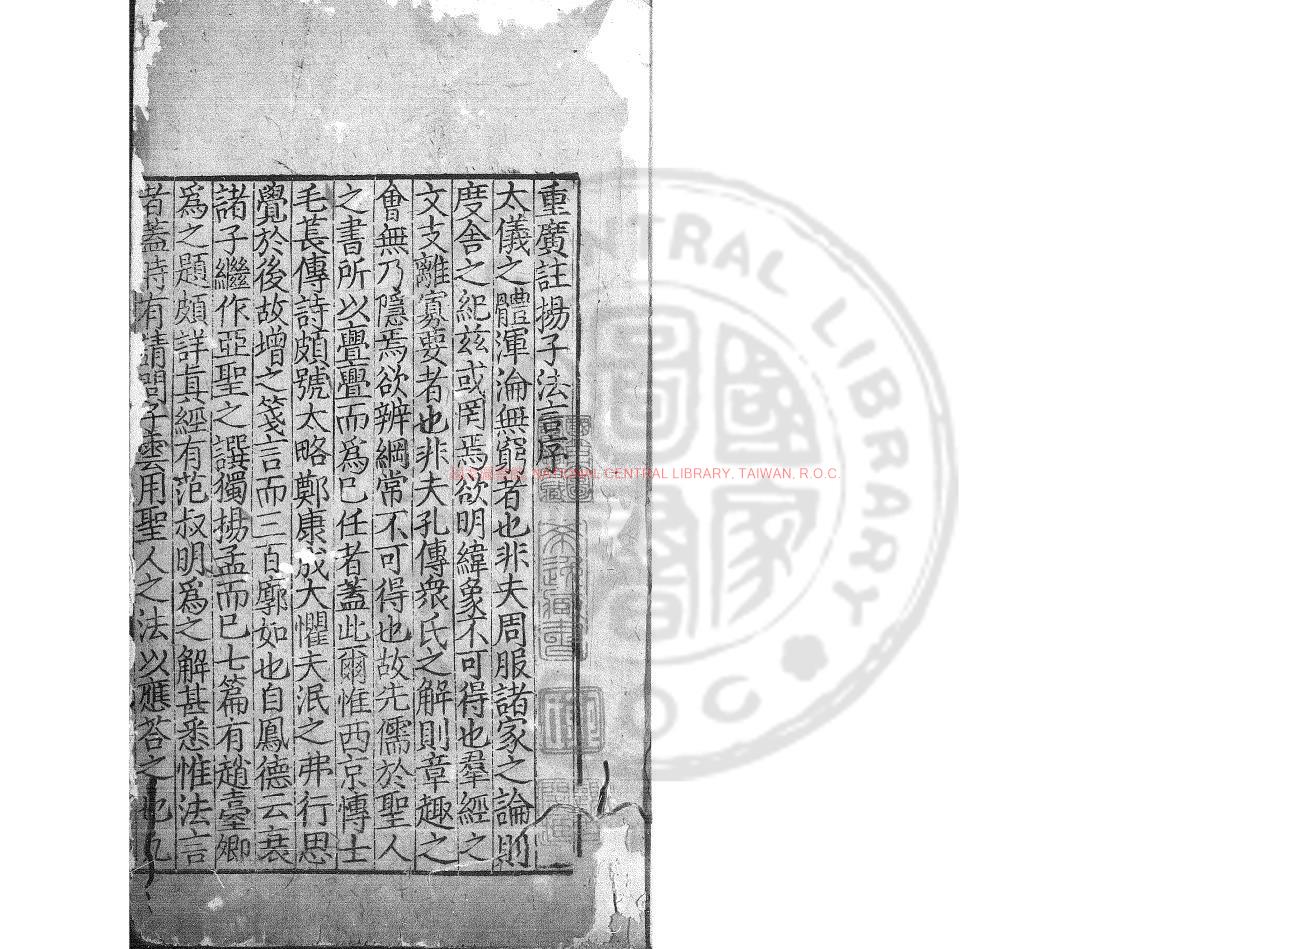 重廣註揚子法言序
太儀之體渾淪無窮者也非夫周服諸家之論則
度舍之紀兹或罔焉欲明緯象不可得也羣經之
文支離寡要者也非夫孔傳衆氏之解則章趣之
會無乃隱焉欲辨綱常不可得也故先儒於聖人
之書所以亹亹而爲己任者蓋此爾惟西京博士
毛萇傳詩頗號太略鄭康成大懼夫泯之弗行思
覺於後故增之箋言而三百廓如也自鳳德云衰
諸子繼作亞聖之譔獨揚孟而已七篇有趙臺卿
爲之題頗詳真經有范叔明爲之解甚悉惟法言
者蓋時有請問子雲用聖人之法以應荅之也
國立圖書館, NATIONAL CENTRAL LIBRARY, TAIWAN, R.O.C.
NTRAL LIBRARY
R.O.C
國家圖